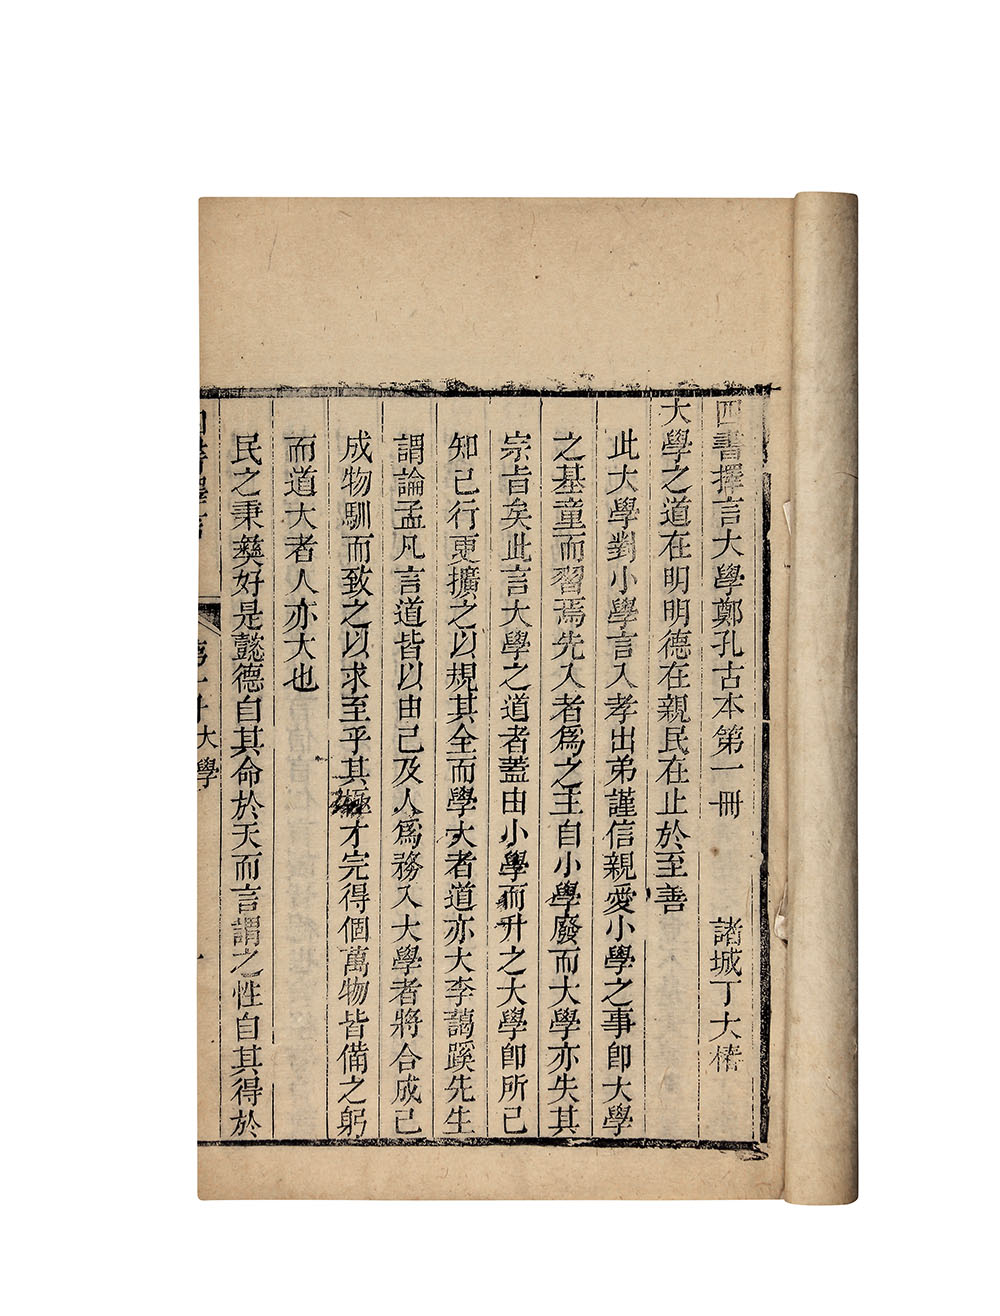 四書擇言大學鄭孔古本第一冊 諸城丁大椿
大學之道在明明德在親民在止於至善
此大學對小學言入孝出弟謹信親愛小學之事卽大學
之基童而習焉先入者爲之主自小學廢而大學亦失其
宗旨矣此言大學之道者蓋由小學而升之大學卽所已
知已行更擴之以規其全而學大者道亦大李藹蹊先生
謂論孟凡言道皆以由己及人爲務入大學者將合成己
成物馴而致之以求至乎其極才完得個萬物皆備之躬
而道大者人亦大也
民之秉彝好是懿德自其命於天而言謂之性自其得於
四書擇言 大學 一